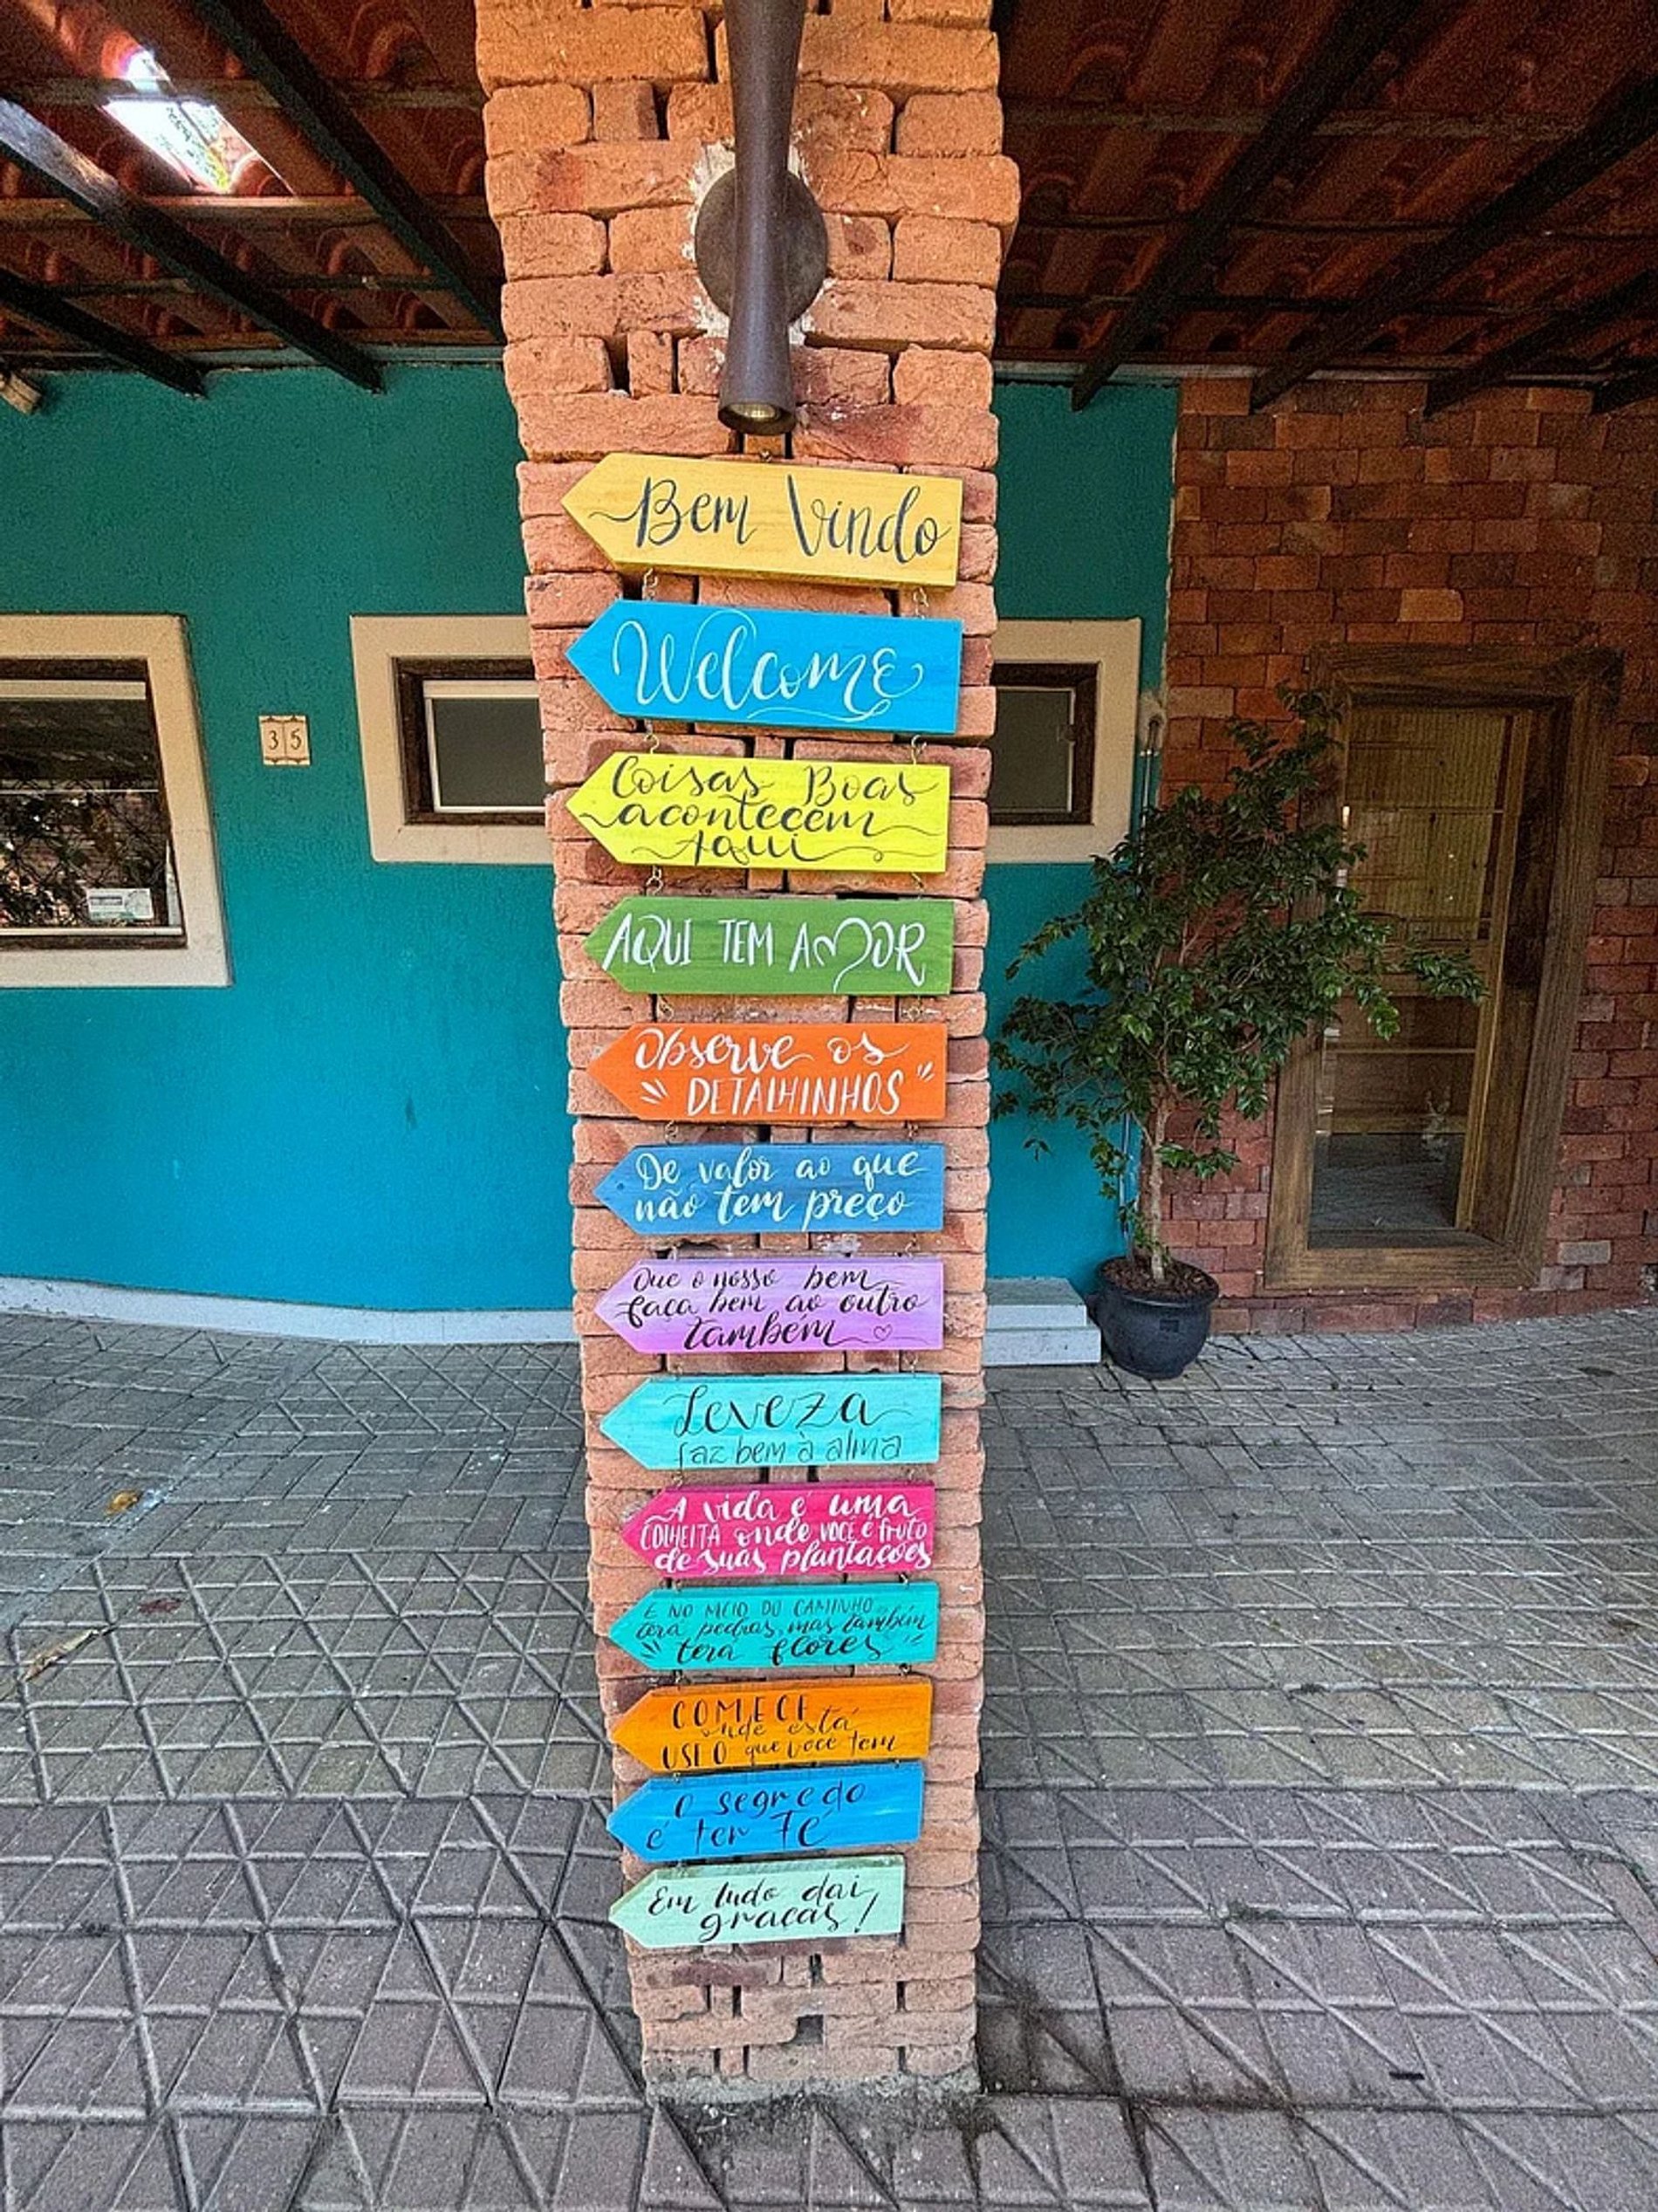 35
Bem Vindo
Welcome
Coisas Boas
acontecem
Aqui
AQUI TEM AMOR
Observe os
"DETALHINHOS"
De valor ao que
não tem preço
Que o nosso bem
faça bem ao outro
também
Leveza
faz bem à alma
A vida é uma
COLHEITA onde VOCÊ é fruto
de suas plantações
E NO MEIO DO CAMINHO
terá pedras, mas também
"terá flores"
COMECE
onde está
USE O que você tem
O segredo
é ter Fé
Em tudo dai
graças!